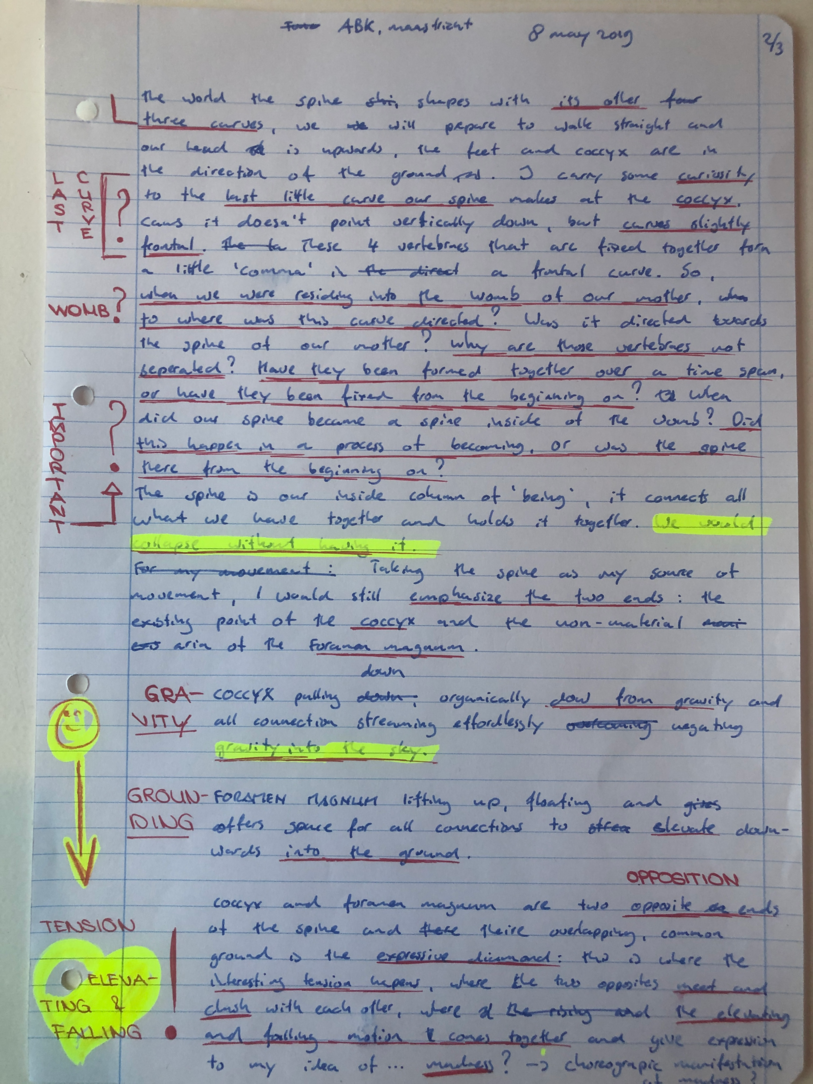 ABK, maastricht 8 may 2019 2/3
the world the spine shapes with its other four
three curves, we will prepare to walk straight and
our head is upwards, the feet and coccyx are in
the direction of the ground. I carry some curiosity
LAST CURVE ?
to the last little curve our spine makes at the coccyx.
caus it doesn't point vertically down, but curves slightly
frontal. These 4 vertebraes that are fixed together form
a little 'comma' in a frontal curve. So,
WOMB?
when we were residing into the womb of our mother,
to where was this curve directed? Was it directed towards
the spine of our mother? Why are those vertebraes not
seperated? Have they been formed together over a time span,
or have they been fixed from the beginning on? When
did our spine became a spine inside of the womb? Did
this happen in a process of becoming, or was the spine
there from the beginning on?
The spine is our inside column of 'being', it connects all
what we have together and holds it together. We would
collapse without having it.
For my movement: Taking the spine as my source of
movement, I would still emphasize the two ends: the
existing point of the coccyx and the non-material
of the Foramen magnum.
down
GRA- COCCYX pulling down, organically dow from gravity and
VITY all connection streaming effortlessly overcoming negating
gravity into the sky.
GROUN- FORAMEN MAGNUM lifting up, floating and gives
DING offers space for all connections to elevate down-
wards into the ground.
OPPOSITION
coccyx and foramen magnum are two opposite ends
TENSION
of the spine and theire overlapping, common
ground is the expressive diamond: this is where the
interesting tension hapens, where the two opposites meet and
ELEVA-
TING &
FALLING !
clash with each other, where the rising and the elevating
and falling motion comes together and give expression
to my idea of ... madness? -> choreograpic manifestation
of madness?